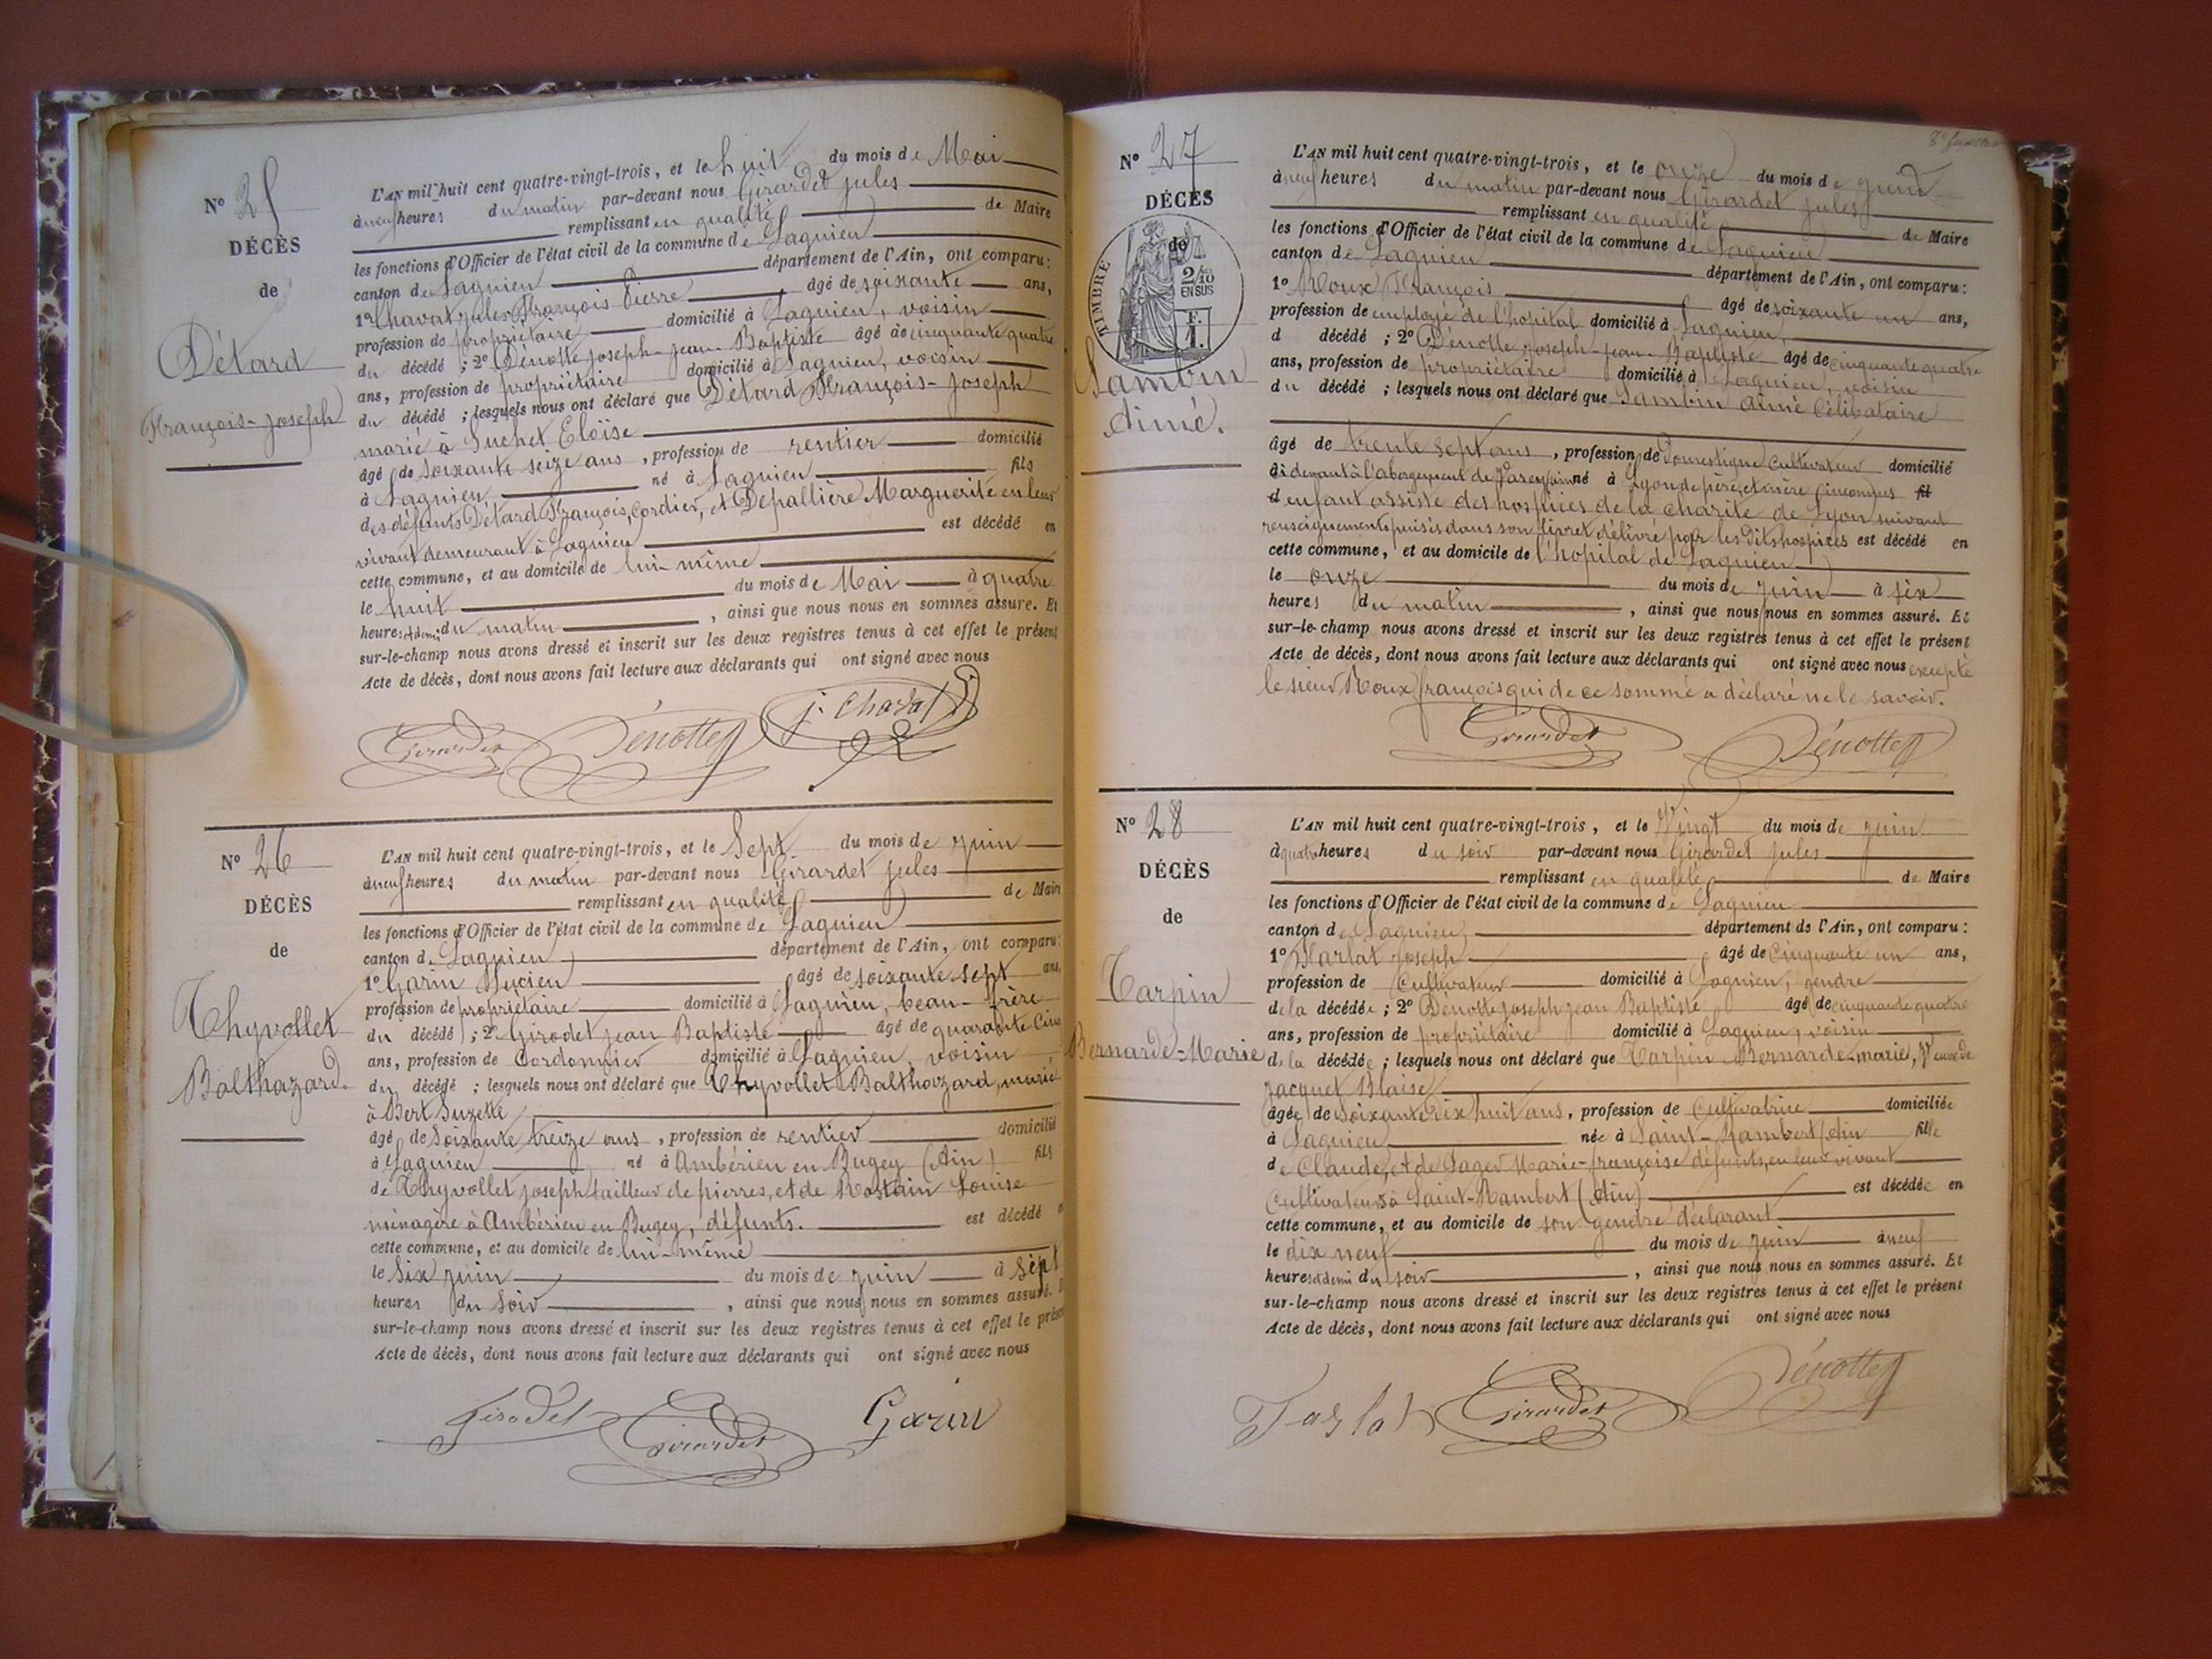 N° 25
DÉCÈS
de
Détard
François-Joseph
L'AN mil huit cent quatre-vingt-trois, et le huit du mois de Mai
à neuf heures du matin par-devant nous Girardet Jules
remplissant en qualité de Maire
les fonctions d'Officier de l'état civil de la commune de Lagnieu
canton de Lagnieu département de l'Ain, ont comparu:
1° Chavat Jules François Pierre âgé de soixante ans,
profession de propriétaire domicilié à Lagnieu, voisin
du décédé ; 2° Dénotte Joseph-Jean-Baptiste âgé de cinquante quatre
ans, profession de propriétaire domicilié à Lagnieu, voisin
du décédé ; lesquels nous ont déclaré que Détard François-Joseph
marié à Suchet Eloïse
âgé de soixante seize ans, profession de rentier domicilié
à Lagnieu né à Lagnieu fils
des défunts Détard François, Cordier, et Depallière Marguerite en leur
vivant demeurant à Lagnieu est décédé en
cette commune, et au domicile de lui-même
le huit du mois de Mai à quatre
heures et demi du matin, ainsi que nous nous en sommes assuré. Et
sur-le-champ nous avons dressé et inscrit sur les deux registres tenus à cet effet le présent
Acte de décès, dont nous avons fait lecture aux déclarants qui ont signé avec nous
Girardet Dénotte J. Chavat
N° 26
DÉCÈS
de
Thyvollet
Balthazard.
L'AN mil huit cent quatre-vingt-trois, et le Sept du mois de Juin
à neuf heures du matin par-devant nous Girardet Jules
remplissant en qualité de Maire
les fonctions d'Officier de l'état civil de la commune de Lagnieu
canton de Lagnieu département de l'Ain, ont comparu:
1° Garin Lucien âgé de soixante sept ans,
profession de propriétaire domicilié à Lagnieu, beau-frère
du décédé ; 2° Girodet Jean Baptiste âgé de quarante cinq
ans, profession de Cordonnier domicilié à Lagnieu, voisin
du décédé ; lesquels nous ont déclaré que Thyvollet Balthazard, marié
à Bert Suzette
âgé de soixante treize ans, profession de rentier domicilié
à Lagnieu né à Ambérieu en Bugey (Ain) fils
de Thyvollet Joseph tailleur de pierres, et de Rostain Louise
ménagère à Ambérieu en Bugey, défunts. est décédé
cette commune, et au domicile de lui-même
le Six juin du mois de Juin à Sept
heures du Soir, ainsi que nous nous en sommes assuré.
sur-le-champ nous avons dressé et inscrit sur les deux registres tenus à cet effet le présent
Acte de décès, dont nous avons fait lecture aux déclarants qui ont signé avec nous
Girodet Girardet Garin
N° 27
DÉCÈS
de
TIMBRE
2/10
EN SUS
F.
1.
Sambin
Aimé.
L'AN mil huit cent quatre-vingt-trois, et le onze du mois de Juin
à neuf heures du matin par-devant nous Girardet Jules
remplissant en qualité de Maire
les fonctions d'Officier de l'état civil de la commune de Lagnieu
canton de Lagnieu département de l'Ain, ont comparu:
1° Roux François âgé de soixante un ans,
profession de employé de l'hopital domicilié à Lagnieu,
d décédé ; 2° Dénotte Joseph-Jean-Baptiste âgé de cinquante quatre
ans, profession de propriétaire domicilié à Lagnieu, voisin
du décédé ; lesquels nous ont déclaré que Sambin Aimé Célibataire
âgé de trente sept ans, profession de Domestique Cultivateur domicilié
ci devant à l'abergement de Varey (ain) né à Lyon de père et mère inconnus fil
d enfant assisté des hospices de la charité de Lyon suivant
renseignements puisés dans son livret délivré par les dits hospices est décédé en
cette commune, et au domicile de l'hopital de Lagnieu
le onze du mois de Juin à six
heures du matin, ainsi que nous nous en sommes assuré. Et
sur-le-champ nous avons dressé et inscrit sur les deux registres tenus à cet effet le présent
Acte de décès, dont nous avons fait lecture aux déclarants qui ont signé avec nous excepté
le sieur Roux françois qui de ce sommé a déclaré ne le savoir.
Girardet Dénotte
N° 28
DÉCÈS
de
Tarpin
Bernarde-Marie
L'AN mil huit cent quatre-vingt-trois, et le Vingt du mois de Juin
à quatre heures du soir par-devant nous Girardet Jules
remplissant en qualité de Maire
les fonctions d'Officier de l'état civil de la commune de Lagnieu
canton de Lagnieu département de l'Ain, ont comparu:
1° Joseph âgé de Cinquante un ans,
profession de Cultivateur domicilié à Lagnieu, gendre
de la décédée ; 2° Dénotte Joseph Jean Baptiste âgé de cinquante quatre
ans, profession de propriétaire domicilié à Lagnieu, voisin
de la décédée ; lesquels nous ont déclaré que Tarpin Bernarde-Marie, Veuve de
Jacquet Blaise
âgée de soixante dix huit ans, profession de Cultivatrice domiciliée
à Lagnieu née à Saint-Rambert (Ain) fille
de Claude, et de Pager Marie-françoise défunts, en leur vivant
Cultivateurs à Saint-Rambert (Ain) est décédée en
cette commune, et au domicile de son gendre déclarant
le dix neuf du mois de Juin à neuf
heures et demi du soir, ainsi que nous nous en sommes assuré. Et
sur-le-champ nous avons dressé et inscrit sur les deux registres tenus à cet effet le présent
Acte de décès, dont nous avons fait lecture aux déclarants qui ont signé avec nous
Girardet Dénotte